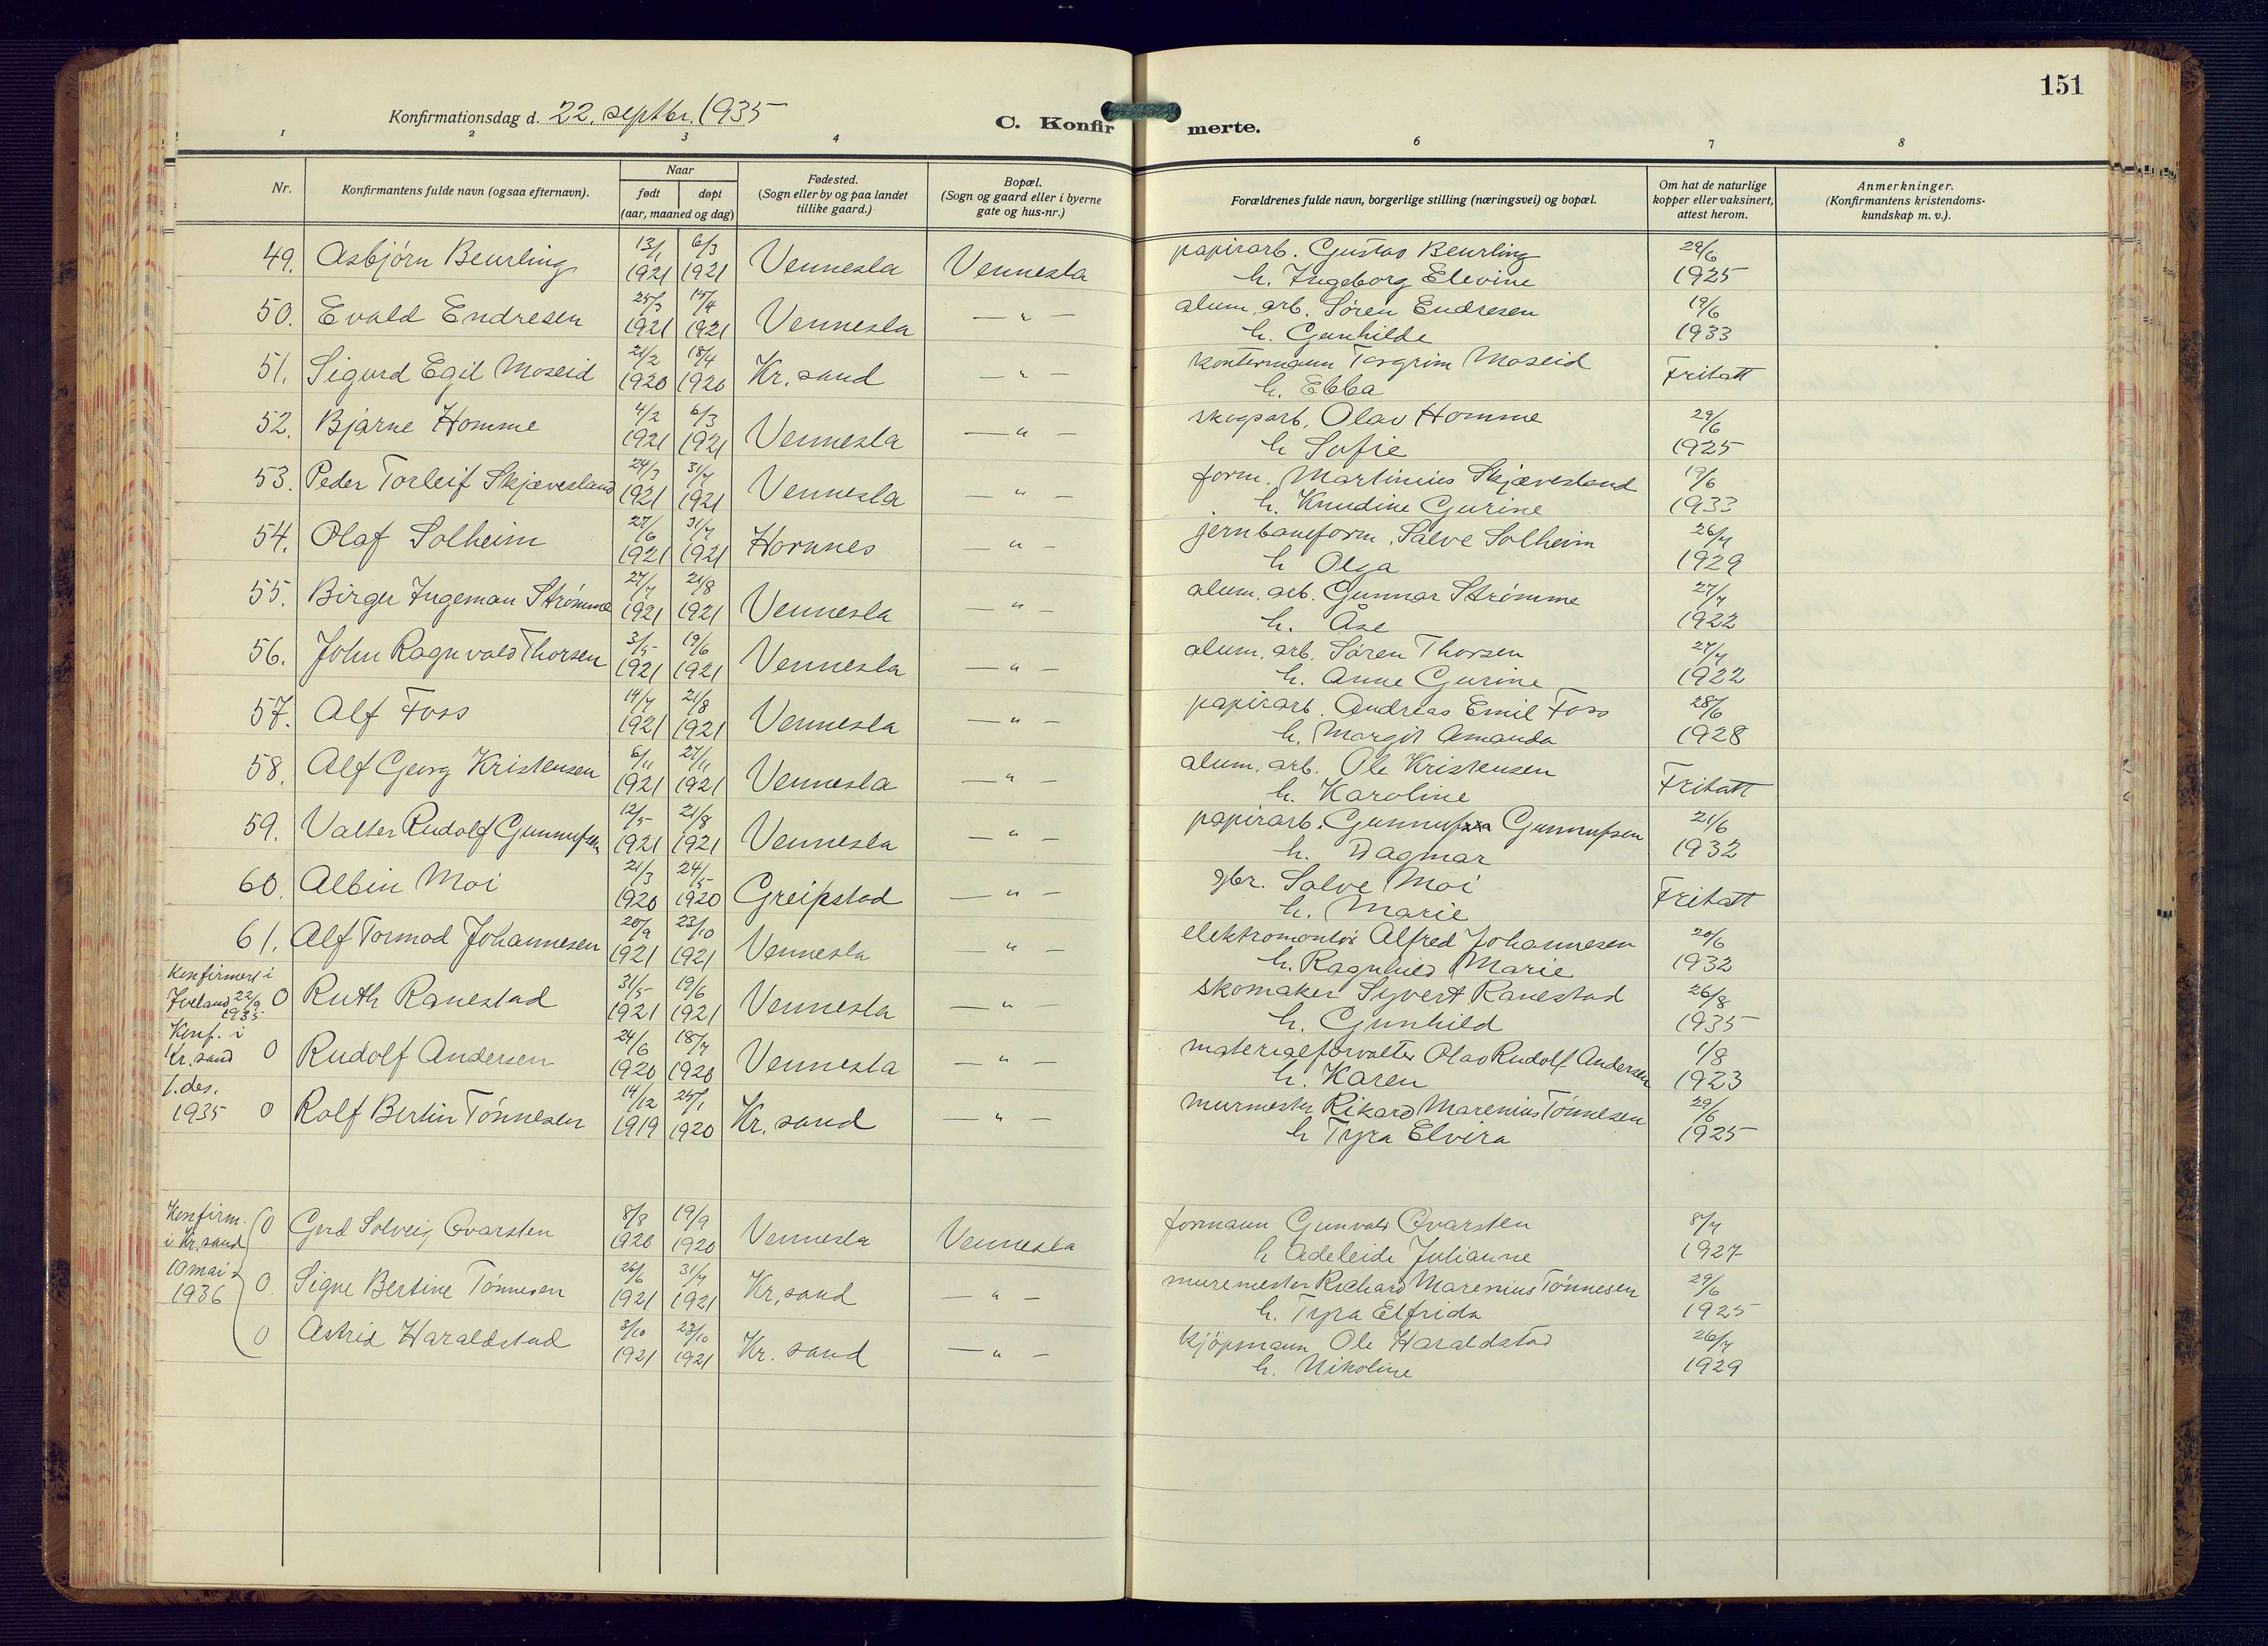 151
Konfirmationsdag d. 22. septbr. 1935
C. Konfirmerte.
1 2 3 4 6 7 8
Nr.
Konfirmantens fulde navn (ogsaa efternavn).
Naar
født døpt
(aar, maaned og dag)
Fødested.
(Sogn eller by og paa landet
tillike gaard.)
Bopæl.
(Sogn og gaard eller i byerne
gate og hus-nr.)
Forældrenes fulde navn, borgerlige stilling (næringsvei) og bopæl.
Om hat de naturlige
kopper eller vaksinert,
attest herom.
Anmerkninger.
(Konfirmantens kristendoms-
kundskap m. v.).
49. Asbjörn Beurling 13/1 1921 6/3 1921 Vennesla Vennesla papirarb. Gustav Beurling 29/6
h. Ingeborg Elevine 1925
50. Evald Endresen 25/3 1921 15/4 1921 Vennesla — " — alum. arb. Søren Endresen 19/6
h. Gunhilde 1933
51. Sigurd Egil Moseid 21/2 1920 18/4 1920 Kr. sand — " — kontormann Torgrim Moseid Fritatt
h. Ebba
52. Bjarne Homme 4/2 1921 6/3 1921 Vennesla — " — skogsarb. Olav Homme 29/6
h Sofie 1925
53. Peder Torleif Skjævesland 24/3 1921 31/7 1921 Vennesla — " — form. Martinius Skjævesland 19/6
h. Knudine Gurine 1933
54. Olaf Solheim 27/6 1921 31/7 1921 Hornnes — " — jernbaneform. Salve Solheim 26/7
h Olga 1929
55. Birger Ingeman Strømme 27/7 1921 21/8 1921 Vennesla — " — alum. arb. Gunnar Strømme 27/7
h. Åse 1922
56. John Ragnvald Thorsen 3/5 1921 19/6 1921 Vennesla — " — alum. arb. Sören Thorsen 27/7
h. Anne Gurine 1922
57. Alf Foss 14/7 1921 21/8 1921 Vennesla — " — papirarb. Andreas Emil Foss 28/6
h. Margit Amanda 1928
58. Alf Georg Kristensen 6/11 1921 27/11 1921 Vennesla — " — alum. arb. Ole Kristensen Fritatt
h. Karoline
59. Valter Rudolf Gunnufsen 12/5 1921 21/8 1921 Vennesla — " — papirarb. Gunnuf Gunnufsen 21/6
h. Dagmar 1932
60. Albin Moi 21/3 1920 24/5 1920 Greipstad — " — gbr. Salve Moi Fritatt
h. Marie
61. Alf Tormod Johannesen 20/9 1921 23/10 1921 Vennesla — " — elektromontör Alfred Johannesen 20/6
h. Ragnhild Marie 1932
Konfirmert i
Iveland 22/9 1935 0 Ruth Ranestad 31/5 1921 19/6 1921 Vennesla — " — skomaker Syvert Ranestad 26/8
h. Gunhild 1935
Konf. i
Kr. sand 0 Rudolf Andersen 24/6 1920 18/7 1920 Vennesla — " — materialforvalter Olav Rudolf Andersen 1/8
h. Karen 1923
1. des.
1935 0 Rolf Bertin Tönnesen 14/12 1919 25/1 1920 Kr. sand — " — murmester Rikard Marenius Tönnesen 29/6
h Tyra Elvira 1925
Konfirm.
i Kr. sand 0 Gerd Solveig Qvarsten 8/8 1920 19/9 1920 Vennesla Vennesla formann Gunvald Qvarsten 8/7
h Adeleide Julianne 1927
10 mai
1936 0 Signe Bertine Tönnesen 26/6 1921 31/7 1921 Kr. sand — " — muremester Richard Marenius Tönnesen 29/6
h. Tyra Elfrida 1925
0 Astrid Haraldstad 3/10 1921 23/10 1921 Kr. sand — " — kjöpmann Ole Haraldstad 26/7
h. Nikoline 1929